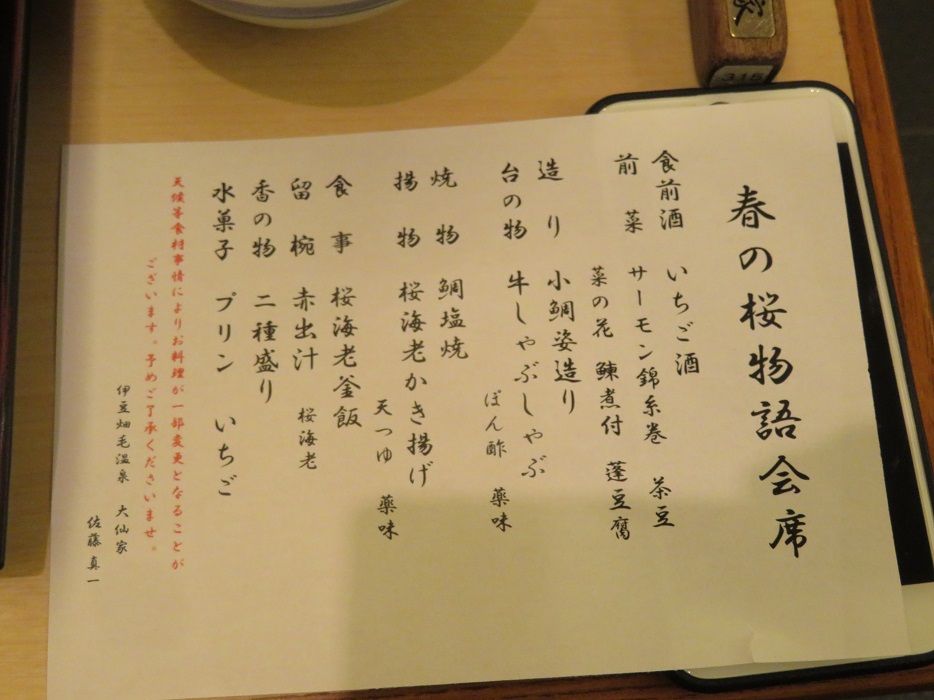 春の桜物語会席
食前酒 いちご酒
前菜 サーモン錦糸巻 茶豆
菜の花 鰊煮付 蓬豆腐
造り 小鯛姿造り
台の物 牛しゃぶしゃぶ
ぽん酢 薬味
焼物 鯛塩焼
揚物 桜海老かき揚げ
天つゆ 薬味
食事 桜海老釜飯
留椀 赤出汁 桜海老
香の物 二種盛り
水菓子 プリン いちご
天候等食材事情によりお料理が一部変更となることが
ございます。予めご了承くださいませ。
伊豆畑毛温泉 大仙家
佐藤真一
315